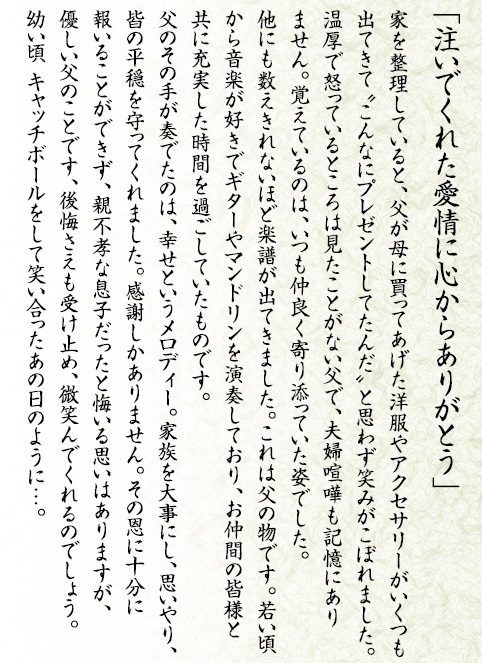 「注いでくれた愛情に心からありがとう」
家を整理していると、父が母に買ってあげた洋服やアクセサリーがいくつも
出てきて〝こんなにプレゼントしてたんだ〟と思わず笑みがこぼれました。
温厚で怒っているところは見たことがない父で、夫婦喧嘩も記憶にあり
ません。覚えているのは、いつも仲良く寄り添っていた姿でした。
他にも数えきれないほど楽譜が出てきました。これは父の物です。若い頃
から音楽が好きでギターやマンドリンを演奏しており、お仲間の皆様と
共に充実した時間を過ごしていたものです。
父のその手が奏でたのは、幸せというメロディー。家族を大事にし、思いやり、
皆の平穏を守ってくれました。感謝しかありません。その恩に十分に
報いることができず、親不孝な息子だったと悔いる思いはありますが、
優しい父のことです、後悔さえも受け止め、微笑んでくれるのでしょう。
幼い頃、キャッチボールをして笑い合ったあの日のように…。